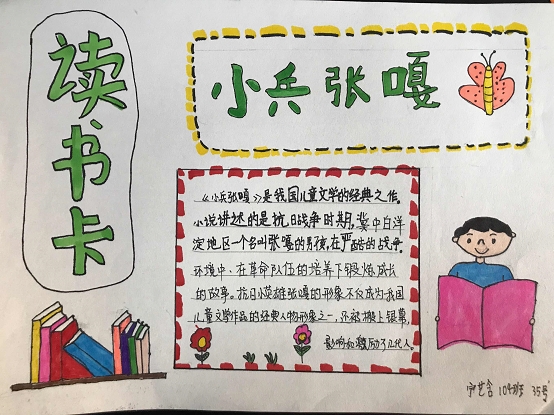 读书卡
小兵张嘎
《小兵张嘎》是我国儿童文学的经典之作。
小说讲述的是抗日战争时期,冀中白洋
淀地区一个名叫张嘎的男孩,在严酷的战争
环境中、在革命队伍的培养下锻炼成长
的故事。抗日小英雄张嘎的形象不仅成为我国
儿童文学作品的经典人物形象之一,还被搬上银幕,
影响和激励了几代人
104班 35号